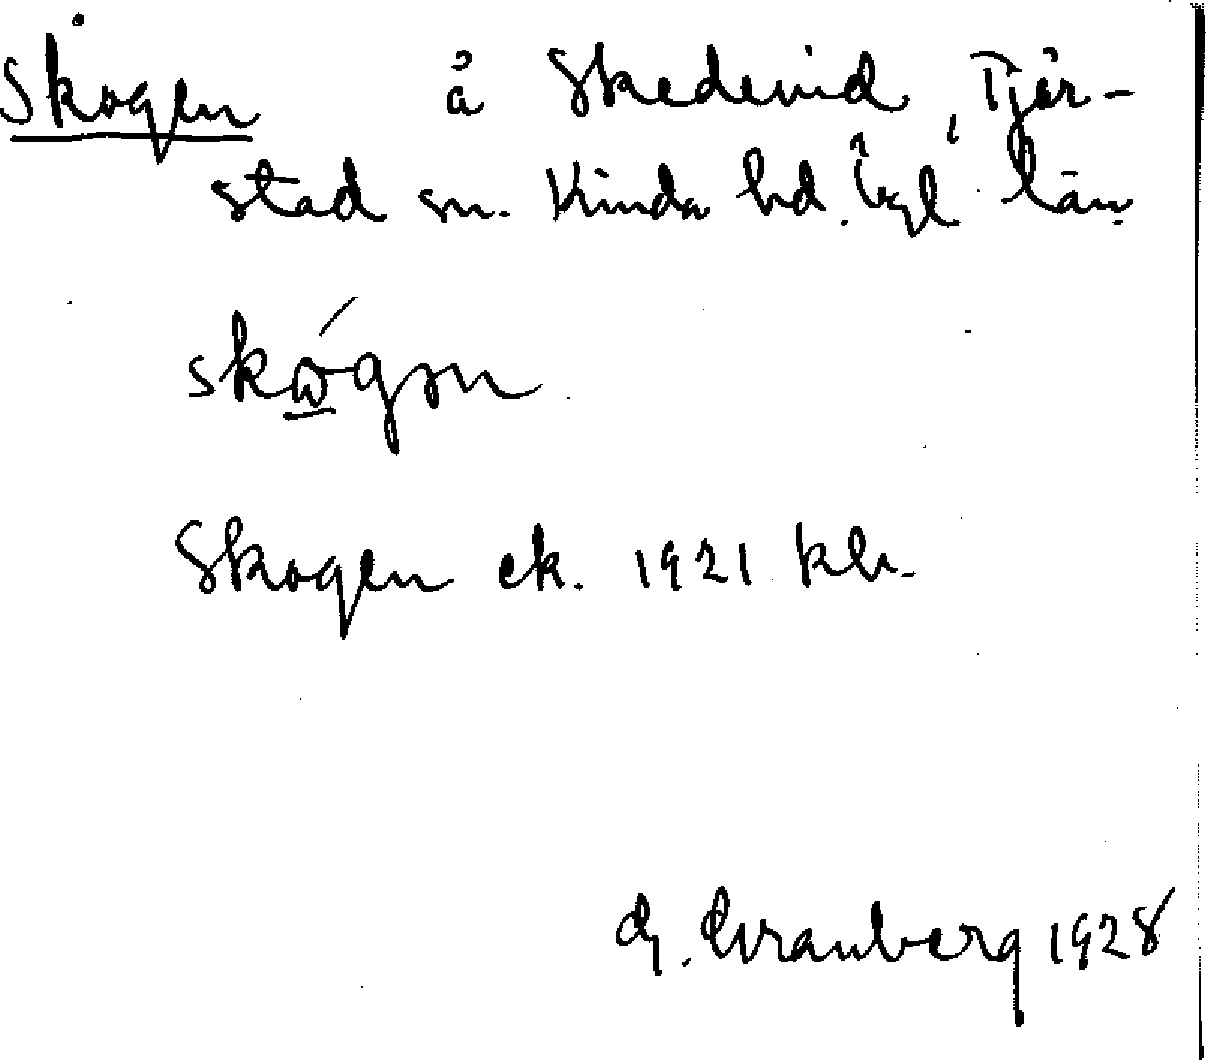 Skogen å Skedevid, Tjär-
stad sn. Kinda hd. Ögl län
Skogen ek. 1921 klr.
G. Granberg 1928